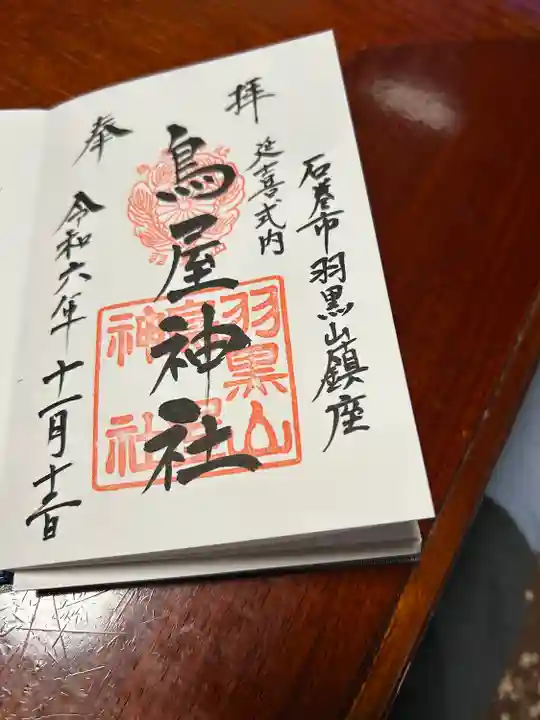 石巻市羽黒山鎮座
拝
延喜式内
鳥屋神社
羽黒山
鳥屋
神社
奉
令和六年十一月十二日